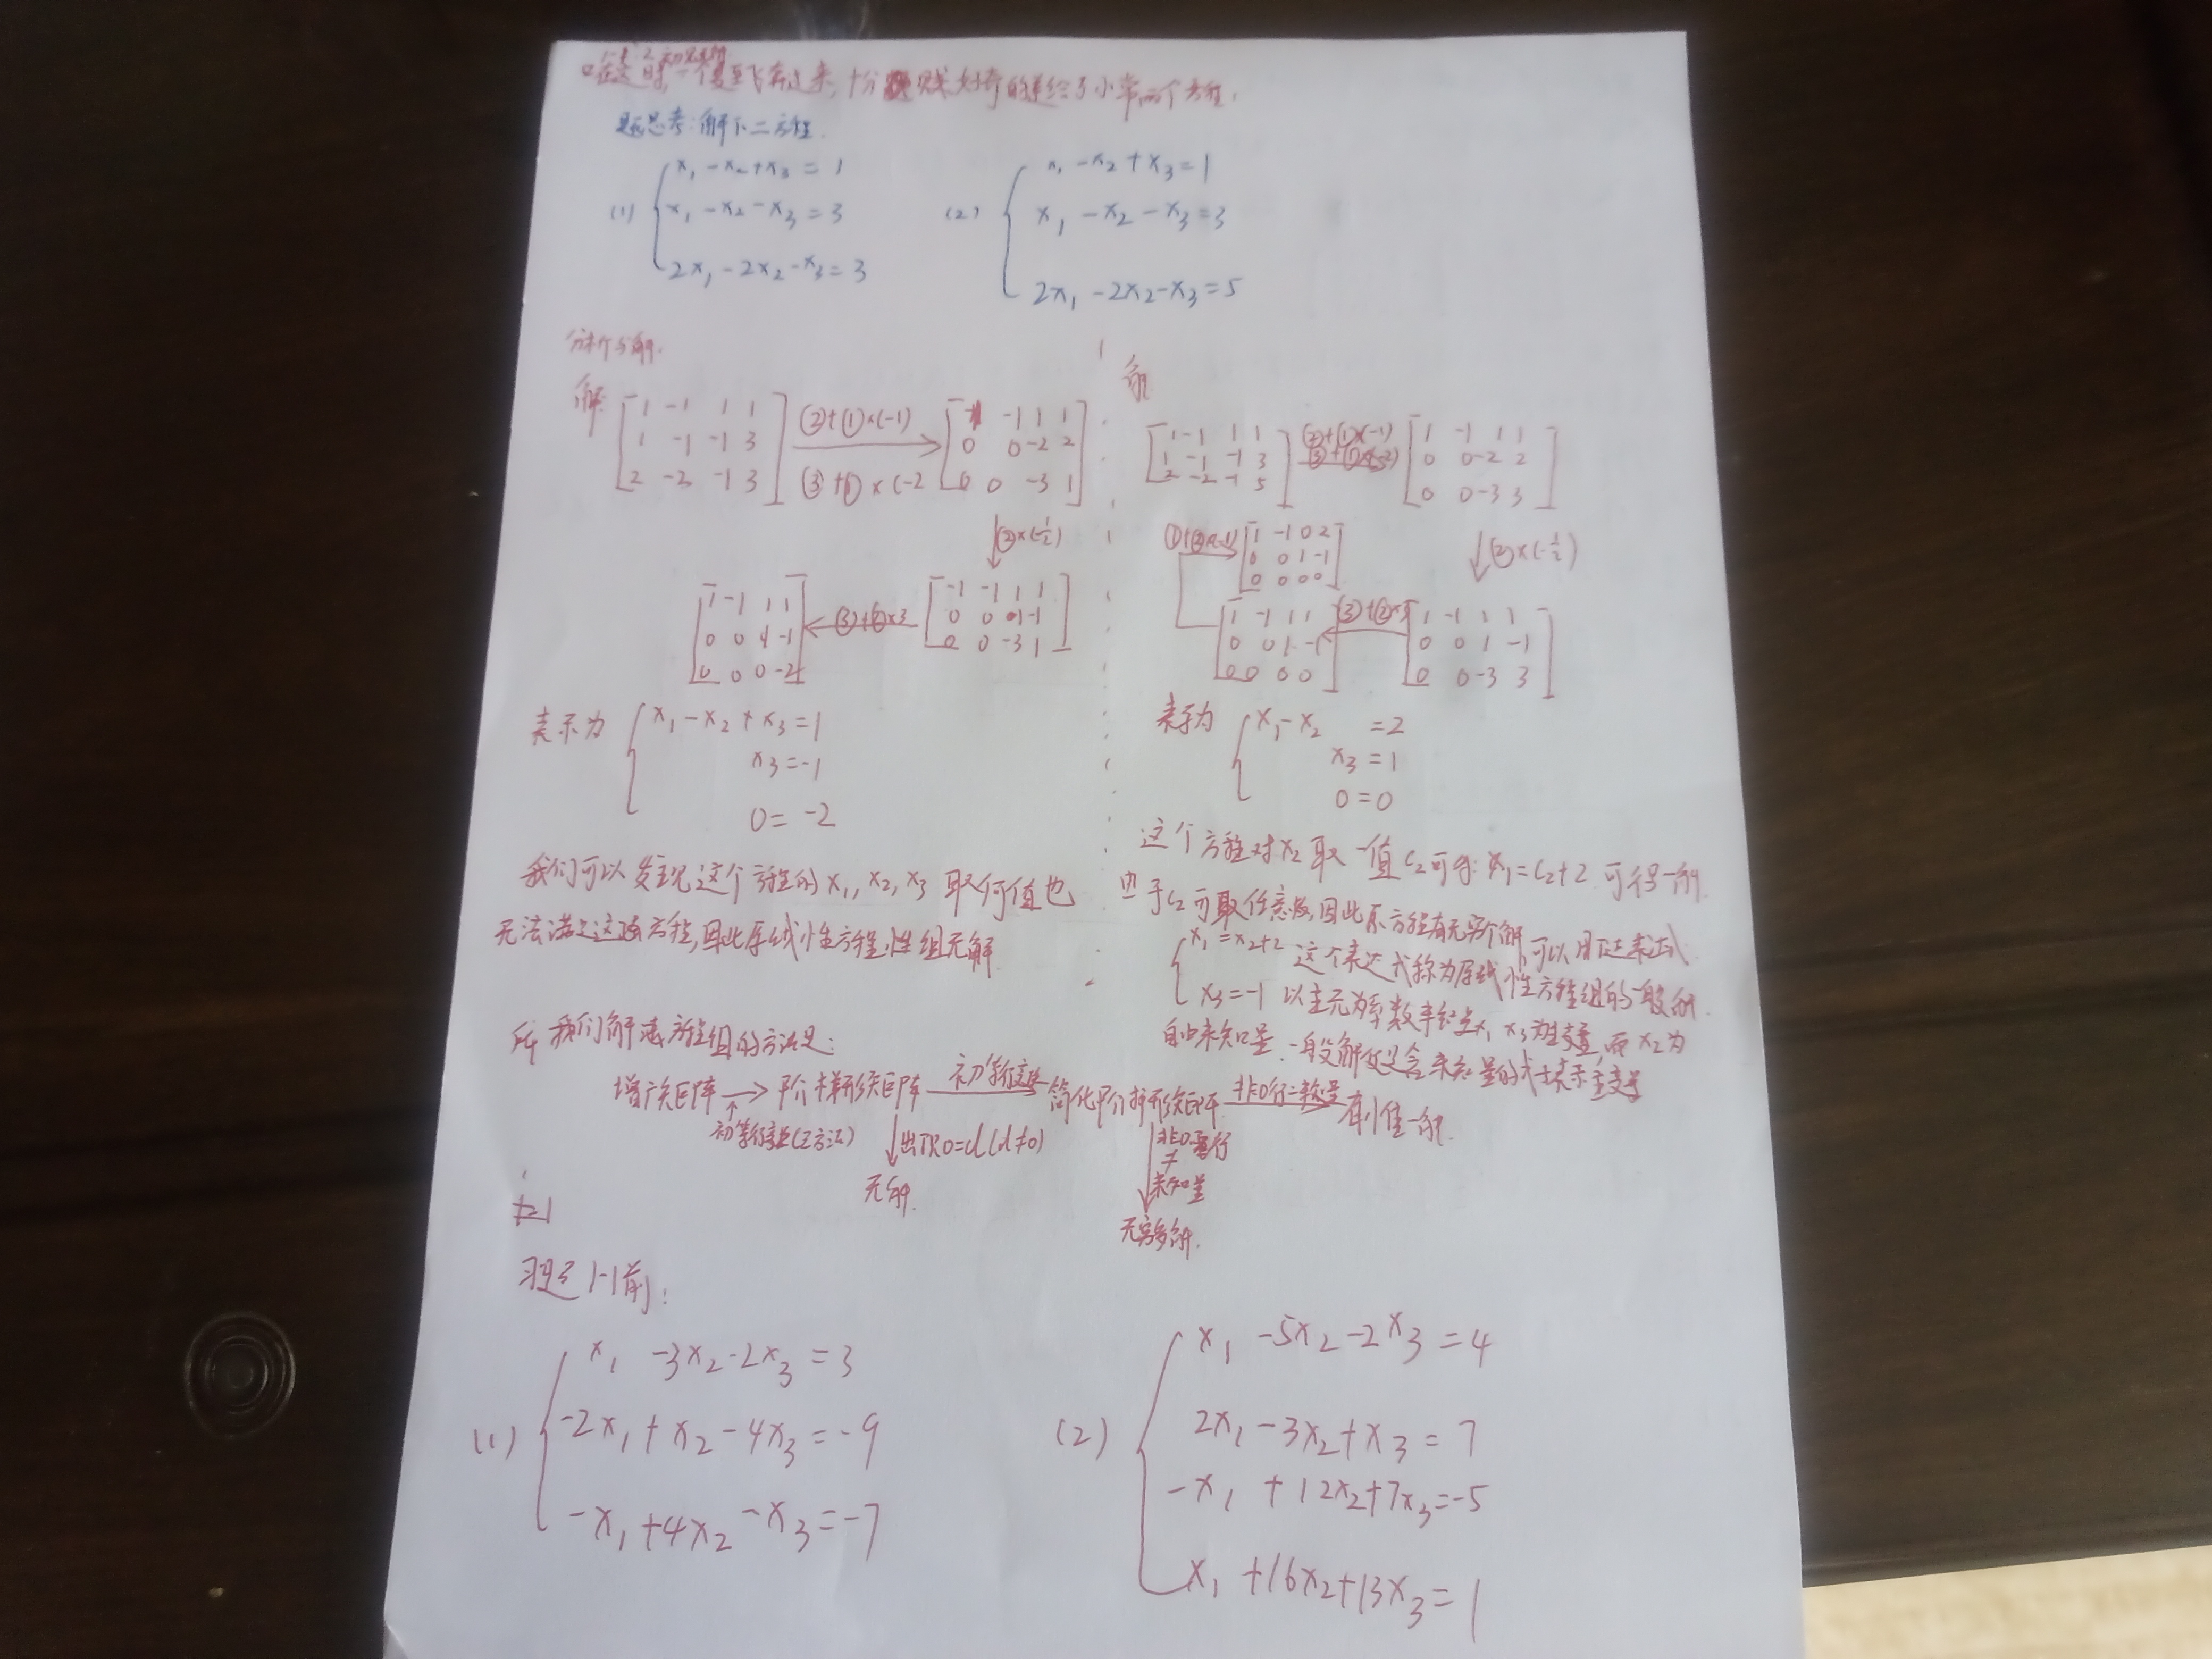 十分贱好奇的递给了小常两个方程.
题思考:解下二方程.
(1) { x₁-x₂+x₃=1
x₁-x₂-x₃=3
2x₁-2x₂-x₃=3
(2) { x₁-x₂+x₃=1
x₁-x₂-x₃=3
2x₁-2x₂-x₃=5
解: [1 -1 1 1
1 -1 -1 3
2 -2 -1 3]
②+①×(-1)
③+①×(-2
[1 -1 1 1
0 0 -2 2
0 0 -3 1]
②×(-1/2)
[1 -1 1 1
0 0 1 -1
0 0 -3 1]
③+②×3
[1 -1 1 1
0 0 1 -1
0 0 0 -2]
表示为 { x₁-x₂+x₃=1
x₃=-1
0=-2
我们可以发现这个方程的x₁,x₂,x₃取何值也
无法满足这该方程,因此原线性方程性组无解
解
[1 -1 1 1
1 -1 -1 3
2 -2 -1 5]
②+①×(-1)
③+①×(-2)
[1 -1 1 1
0 0 -2 2
0 0 -3 3]
②×(-1/2)
[1 -1 1 1
0 0 1 -1
0 0 -3 3]
③+②×3
[1 -1 1 1
0 0 1 -1
0 0 0 0]
①+②×(-1)
[1 -1 0 2
0 0 1 -1
0 0 0 0]
表示为 { x₁-x₂ =2
x₃=1
0=0
这个方程对x₂取一值c₂可得:x₁=c₂+2.可得一解.
由于c₂可取任意数,因此原方程有无穷个解,可以用下述表达式
{ x₁=x₂+2 这个表达式称为原线性方程组的一般解.
x₃=-1 以主元为系数 x₁ x₃为主变量,而x₂为
自由未知量.一般解 含未知量的式 表示主变量
所我们解 方程组的方法是:
增广矩阵→阶梯形矩阵 初等行变换 简化阶梯形矩阵 非0行=未知量 有唯一解.
初等行变换( 方法)
出现0=d(d≠0)
无解.
非0行
≠
未知量
无穷多解.
习题1-1前:
(1) { x₁-3x₂-2x₃=3
-2x₁+x₂-4x₃=-9
-x₁+4x₂-x₃=-7
(2) { x₁-5x₂-2x₃=4
2x₁-3x₂+x₃=7
-x₁+12x₂+7x₃=-5
x₁+16x₂+13x₃=1